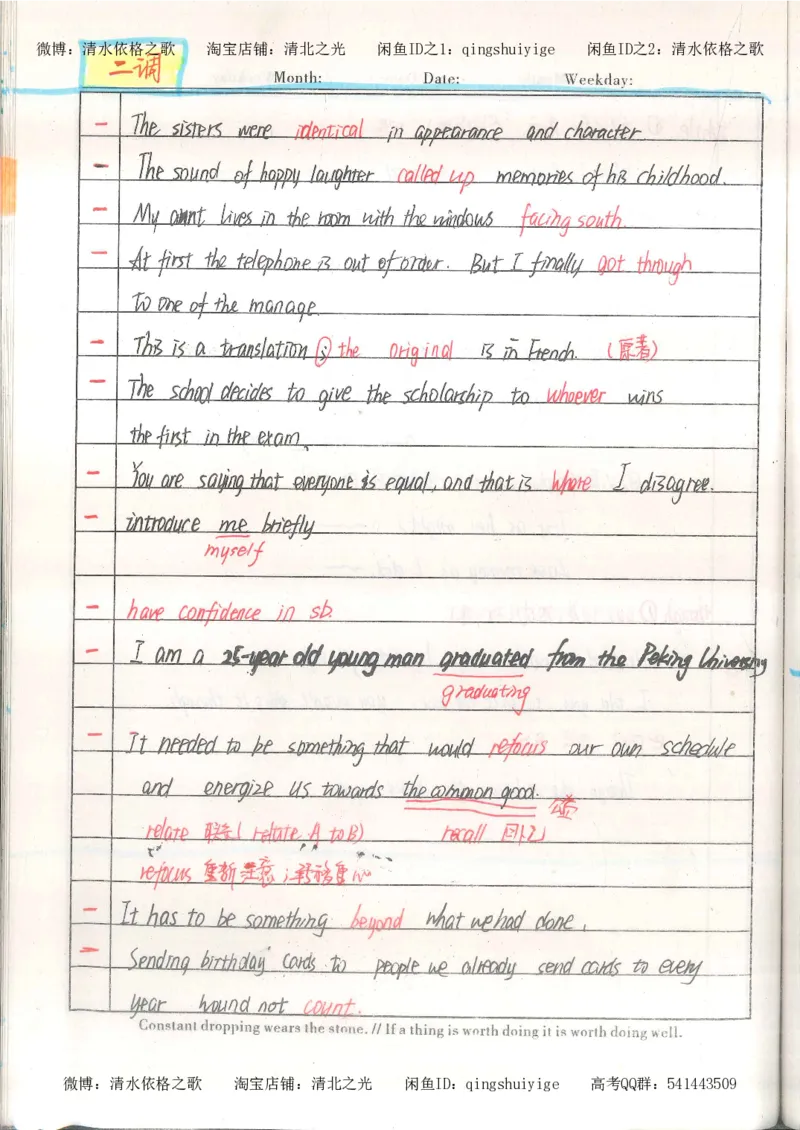 微博：清水依格之歌 淘宝店铺：清北之光 闲鱼ID之1：qingshuiyige 闲鱼ID之2：清水依格之歌
二调
Month: Date: Weekday:
- The sisters were identical in appearance and character.
- The sound of happy laughter called up memories of his childhood.
- My aunt lives in the room with the windows facing south.
- At first the telephone is out of order. But I finally got through
to one of the manage
- This is a translation ; the original is in French. (原著)
- The school decides to give the scholarship to whoever wins
the first in the exam.
- You are saying that everyone is equal, and that is where I disagree.
- introduce me briefly
myself
- have confidence in sb.
- I am a 25-year old young man graduated from the Peking University
graduating
- It needed to be something that would refocus our own schedule
and energize us towards the common good.
relate 联结( relate A to B) recall 回忆
refocus 重新注意；转移重心
- It has to be something beyond what we had done.
- Sending birthday cards to people we already send cards to every
year wound not count.
Constant dropping wears the stone. // If a thing is worth doing it is worth doing well.
微博：清水依格之歌 淘宝店铺：清北之光 闲鱼ID：qingshuiyige 高考QQ群：541443509